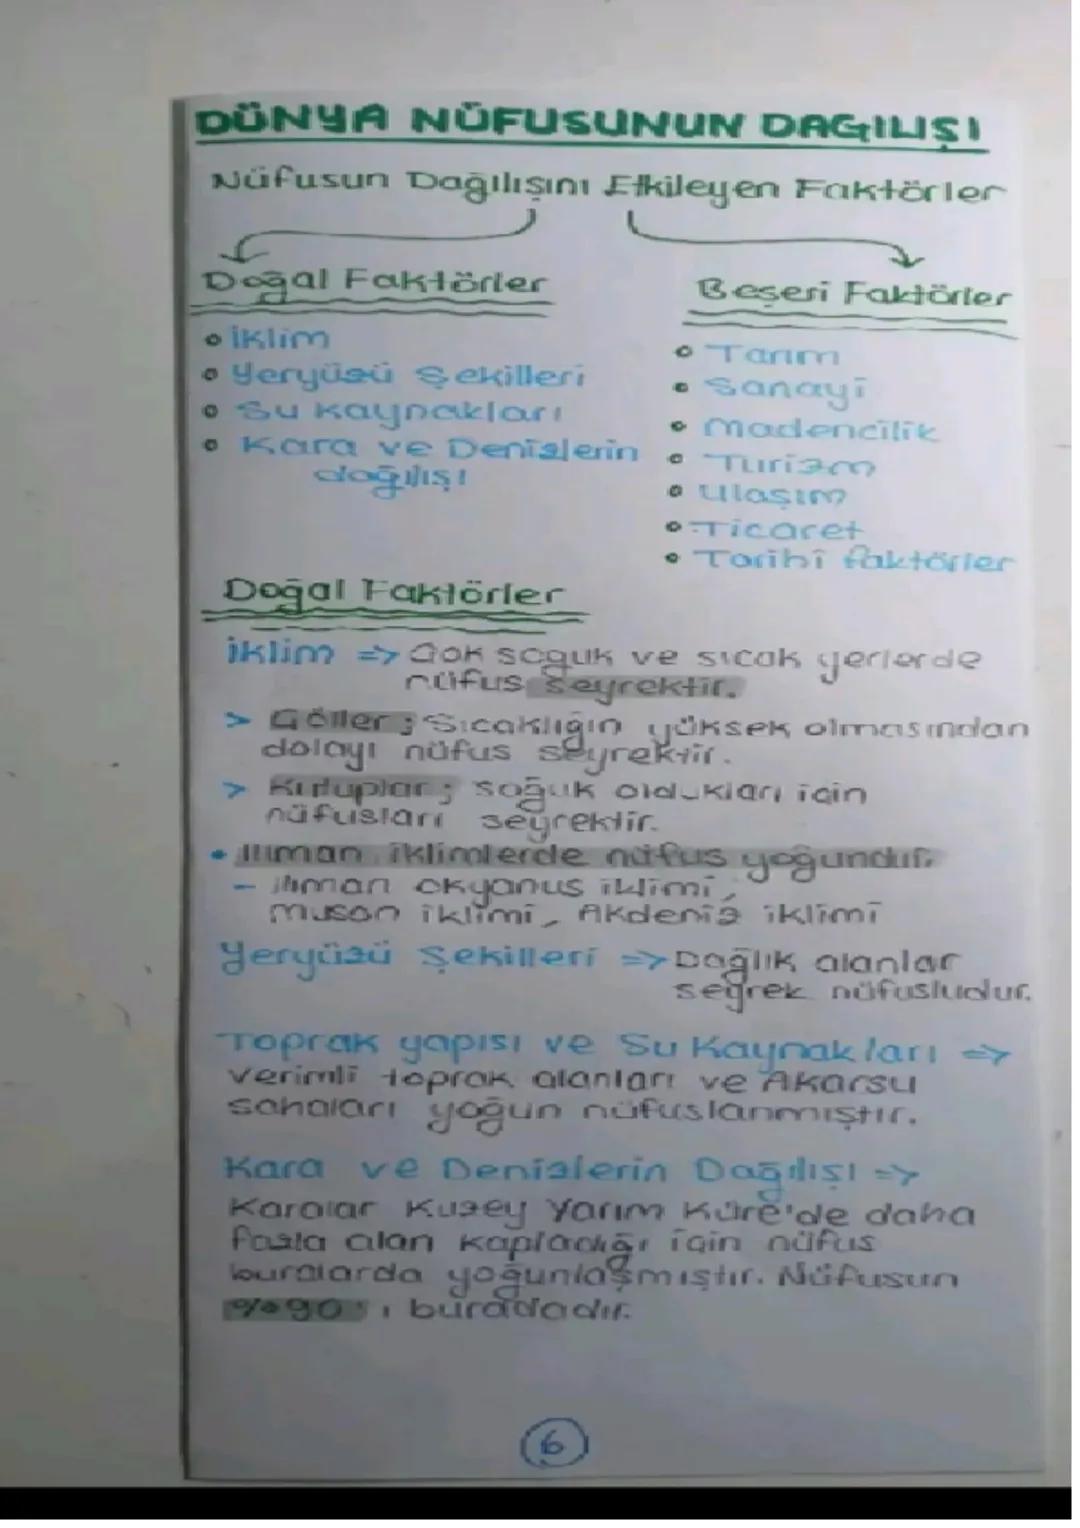 DÜNYA NÜFUSUNUN DAGILIŞI
Nüfusun Dağılışını Etkileyen Faktörler
Doğal Faktörler
Beşeri Faktörler
• İklim
• Yeryüzü Şekilleri
• Su kaynakları
• Kara ve Denizlerin
dağılışı
• Tarım
• Sanayi
• Madencilik
• Turizm
• Ulaşım
• Ticaret
• Tarihî faktörler
Doğal Faktörler
İklim => Çok soguk ve sıcak yerlerde
nüfus seyrektir.
> Çöller ; Sıcaklığın yüksek olmasından
dolayı nüfus seyrektir.
> Kutuplar ; soğuk oldukları için
nüfusları seyrektir.
• Ilıman iklimlerde nüfus yoğundur.
- ılıman okyanus iklimi,
muson iklimi, Akdeniz iklimi
Yeryüzü Şekilleri => Dağlık alanlar
seyrek nüfusludur.
Toprak yapısı ve Su Kaynakları =>
verimli toprak alanları ve Akarsu
sahaları yoğun nüfuslanmıştır.
Kara ve Denizlerin Dağılışı =>
Karalar Kuzey Yarım Küre'de daha
fazla alan kapladığı için nüfus
buralarda yoğunlaşmıştır. Nüfusun
%90'ı buradadır.
6